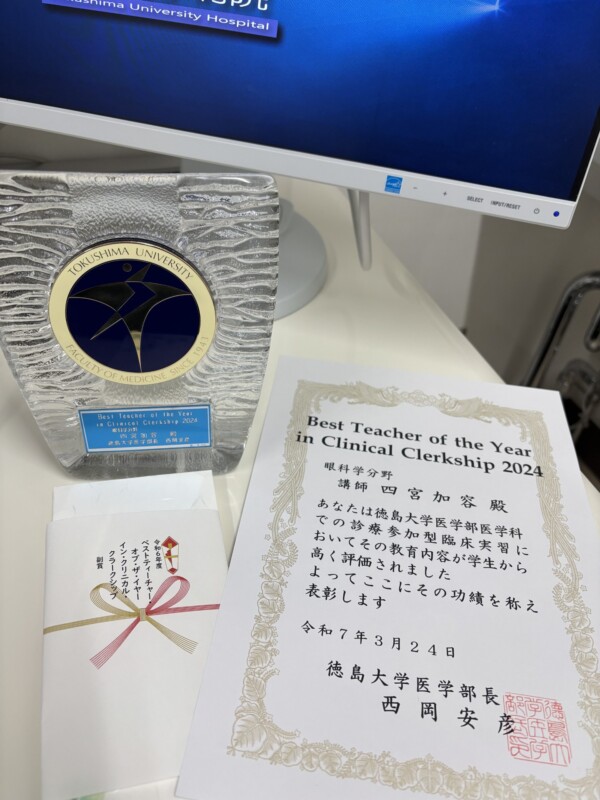 kushima University Hospital
SELECT
INPUT/RESET
TOKUSHIMA UNIVERSITY
FACULTY OF MEDICINE SINCE 1943
Best Teacher of the Year
in Clinical Clerkship 2024
眼科学分野
四宮加容 殿
徳島大学医学部長 西岡安彦
令和6年度
ベストティーチャー
オブ・ザ・イヤー
イン・クリニカル・
クラークシップ
副賞
Best Teacher of the Year
in Clinical Clerkship 2024
眼科学分野
講師 四宮加容 殿
あなたは徳島大学医学部医学科
での診療参加型臨床実習に
おいてその教育内容が学生から
高く評価されました
よってここにその功績を称え
表彰します
令和7年3月24日
徳島大学医学部長
西岡安彦